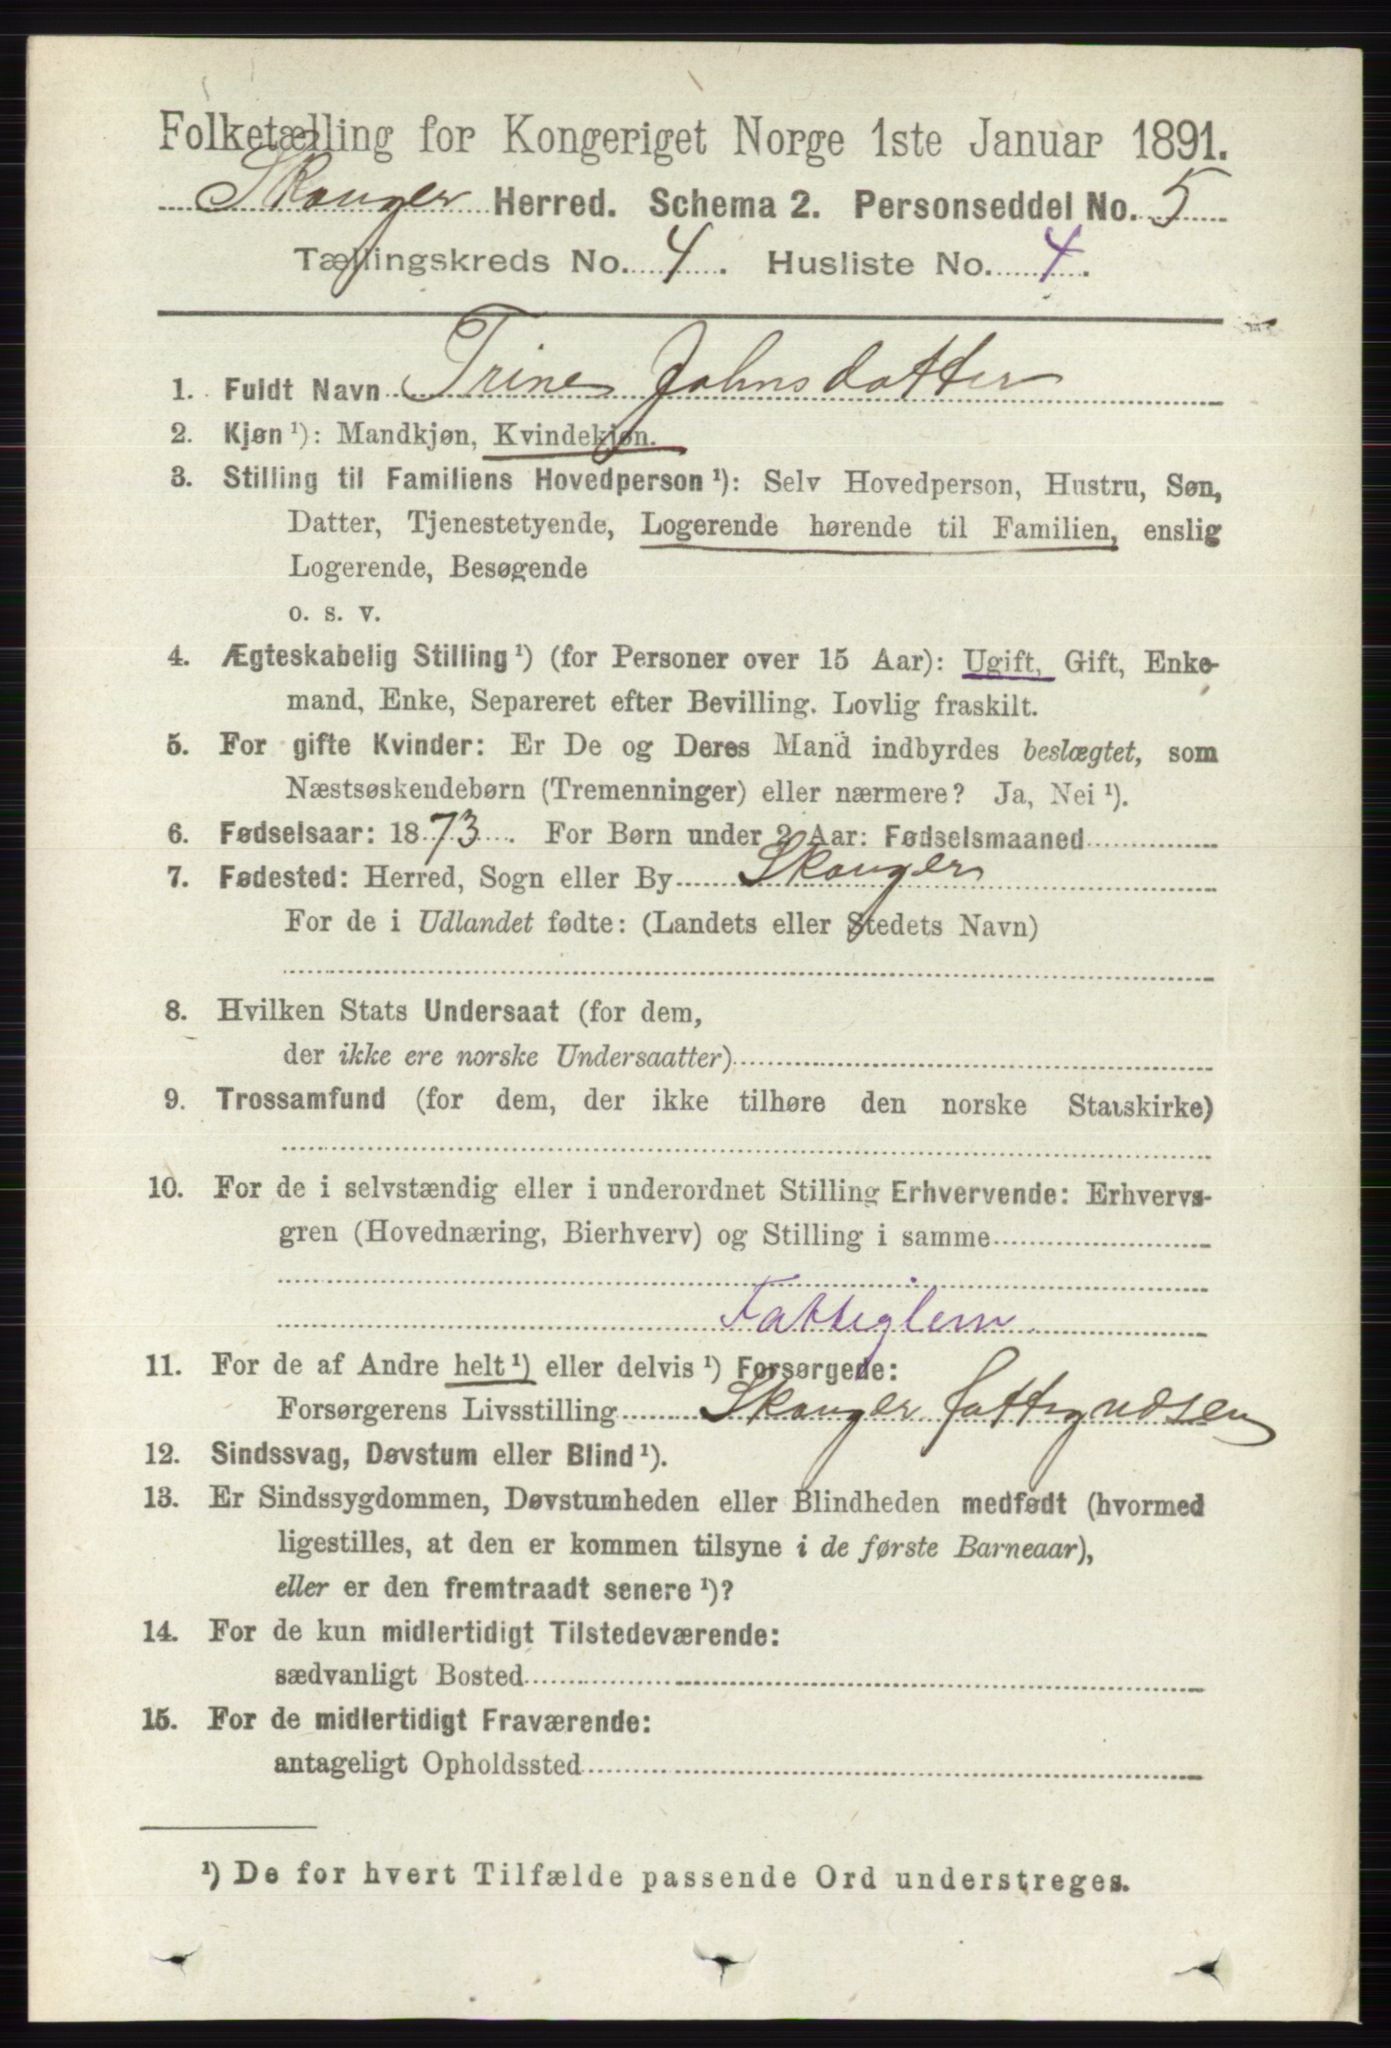 Folketælling for Kongeriget Norge 1ste Januar 1891.
Skouger Herred. Schema 2. Personseddel No. 5
Tællingskreds No. 4. Husliste No. 4.
1. Fuldt Navn Trine Johnsdatter
2. Kjøn ¹): Mandkjøn, Kvindekjøn.
3. Stilling til Familiens Hovedperson ¹): Selv Hovedperson, Hustru, Søn,
Datter, Tjenestetyende, Logerende hørende til Familien, enslig
Logerende, Besøgende
o. s. v.
4. Ægteskabelig Stilling ¹) (for Personer over 15 Aar): Ugift, Gift, Enke-
mand, Enke, Separeret efter Bevilling. Lovlig fraskilt.
5. For gifte Kvinder: Er De og Deres Mand indbyrdes beslægtet, som
Næstsøskendebørn (Tremenninger) eller nærmere? Ja, Nei ¹).
6. Fødselsaar: 1873. For Børn under 2 Aar: Fødselsmaaned
7. Fødested: Herred, Sogn eller By Skouger
For de i Udlandet fødte: (Landets eller Stedets Navn)
8. Hvilken Stats Undersaat (for dem,
der ikke ere norske Undersaatter)
9. Trossamfund (for dem, der ikke tilhøre den norske Statskirke)
10. For de i selvstændig eller i underordnet Stilling Erhvervende: Erhvervs-
gren (Hovednæring, Bierhverv) og Stilling i samme
Fattiglem
11. For de af Andre helt ¹) eller delvis ¹) Forsørgede:
Forsørgerens Livsstilling Skouger fattigvæsen
12. Sindssvag, Døvstum eller Blind ¹).
13. Er Sindssygdommen, Døvstumheden eller Blindheden medfødt (hvormed
ligestilles, at den er kommen tilsyne i de første Barneaar),
eller er den fremtraadt senere ¹)?
14. For de kun midlertidigt Tilstedeværende:
sædvanligt Bosted
15. For de midlertidigt Fraværende:
antageligt Opholdssted
¹) De for hvert Tilfælde passende Ord understreges.